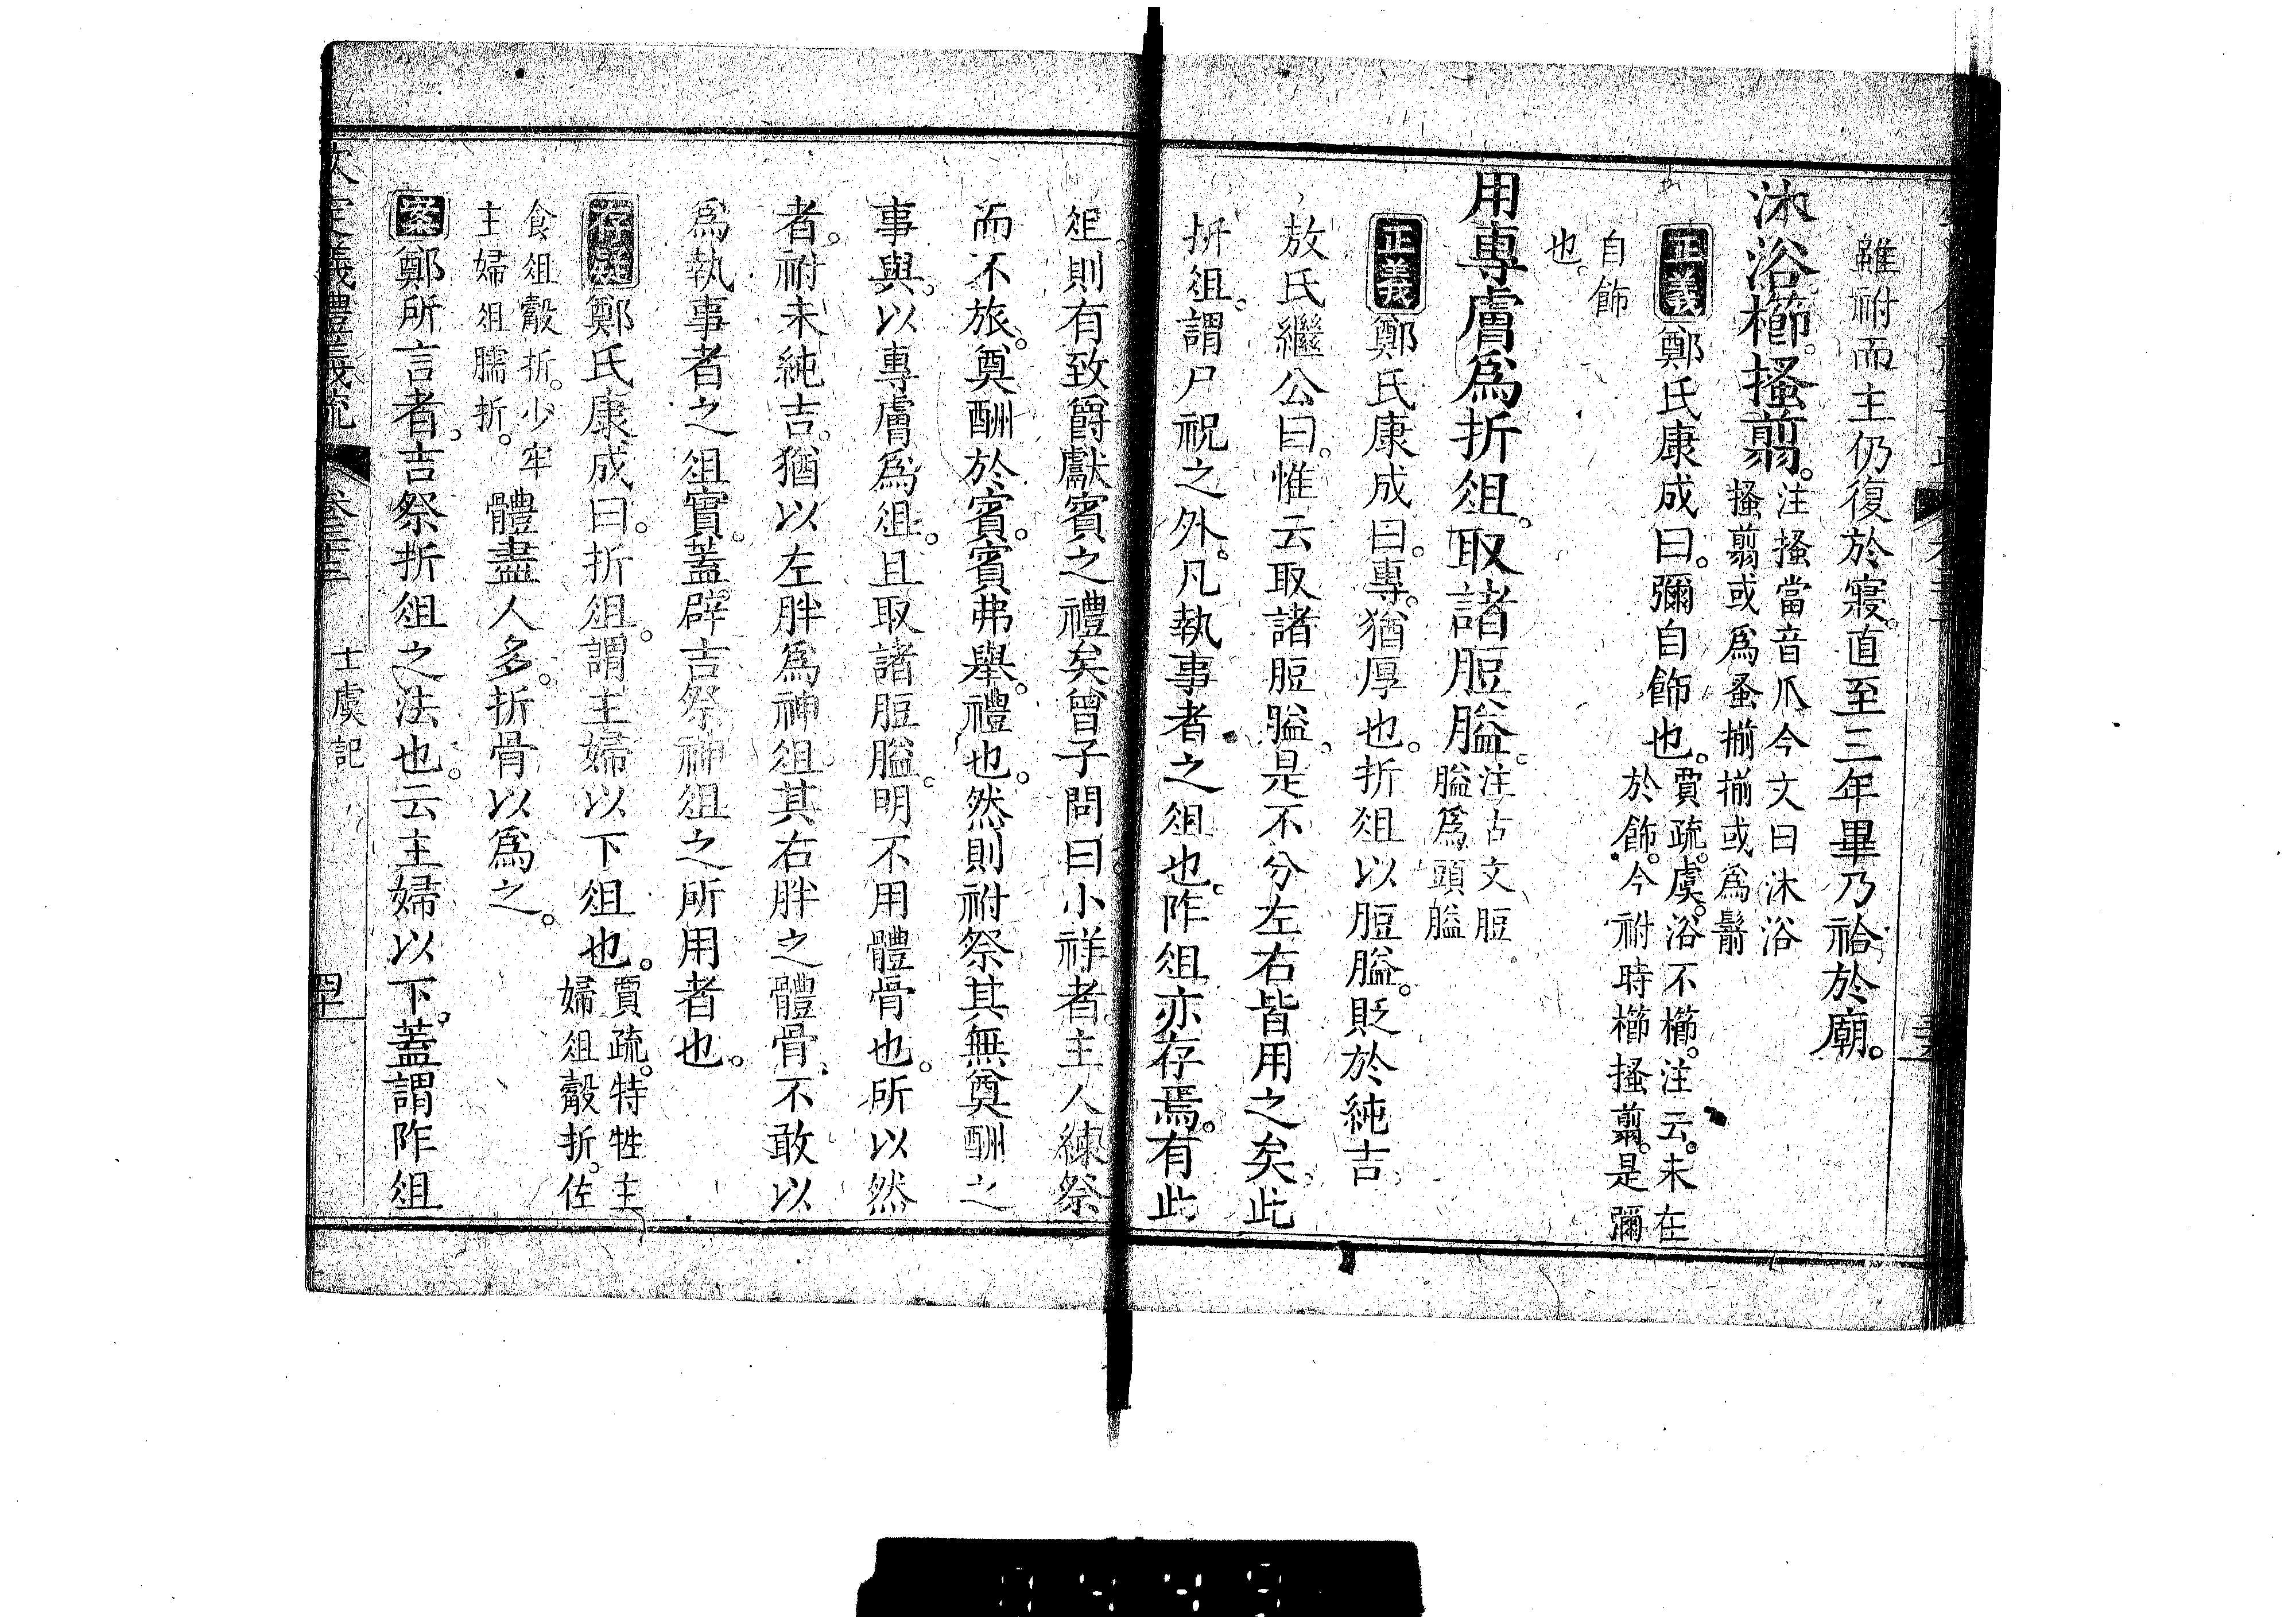 雖祔而主仍復於寢。直至三年畢乃祫於廟。
沐浴櫛搔翦。注搔當音爪今文曰沐浴
搔翦或爲蚤揃揃或爲鬋
正義鄭氏康成曰。彌自飾也。賈疏。虞。浴不櫛。注云。未在
於飾。今祔時櫛搔翦。是彌
自飾
也。
用專膚爲折俎。取諸脰膉。注古文脰
膉爲頭嗌
正義鄭氏康成曰。專。猶厚也。折俎以脰膉。貶於純吉
敖氏繼公曰。惟云取諸脰膉。是不分左右皆用之矣。此
折俎。謂尸祝之外。凡執事者之俎也。阼俎亦存焉。有此
俎。則有致爵獻賓之禮矣。曾子問曰。小祥者。主人練祭
而不旅。奠酬於賓。賓弗舉。禮也。然則祔祭其無奠酬之
事與。以專膚爲俎。且取諸脰膉。明不用體骨也。所以然
者。祔未純吉。猶以左胖爲神俎。其右胖之體骨。不敢以
爲執事者之俎實。蓋辟吉祭神俎之所用者也。
存疑鄭氏康成曰。折俎。謂主婦以下俎也。賈疏。特牲主
婦俎觳折。佐
食俎觳折。少牢
主婦俎臑折。體盡人多。折骨以爲之。
案鄭所言者。吉祭折俎之法也。云主婦以下。蓋謂阼俎
欽定儀禮義疏 卷三十三 士虞記